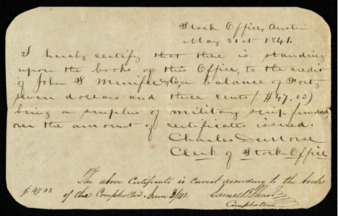 Stock Office, Austin
May 21st 1841
I hereby certify that there is standing
upon the books of this Office, to the credit
of John W a balance of Forty
seven dollars and three cents ($47.03)
being a surplus of military scrip funded
over the amount of certificate issued.
Charles DeMorse
Clerk of Stock Office
The above Certificate is correct according to the books
$47.03 of this Comptroller June 3/41.
James B Shaw
Comptroller